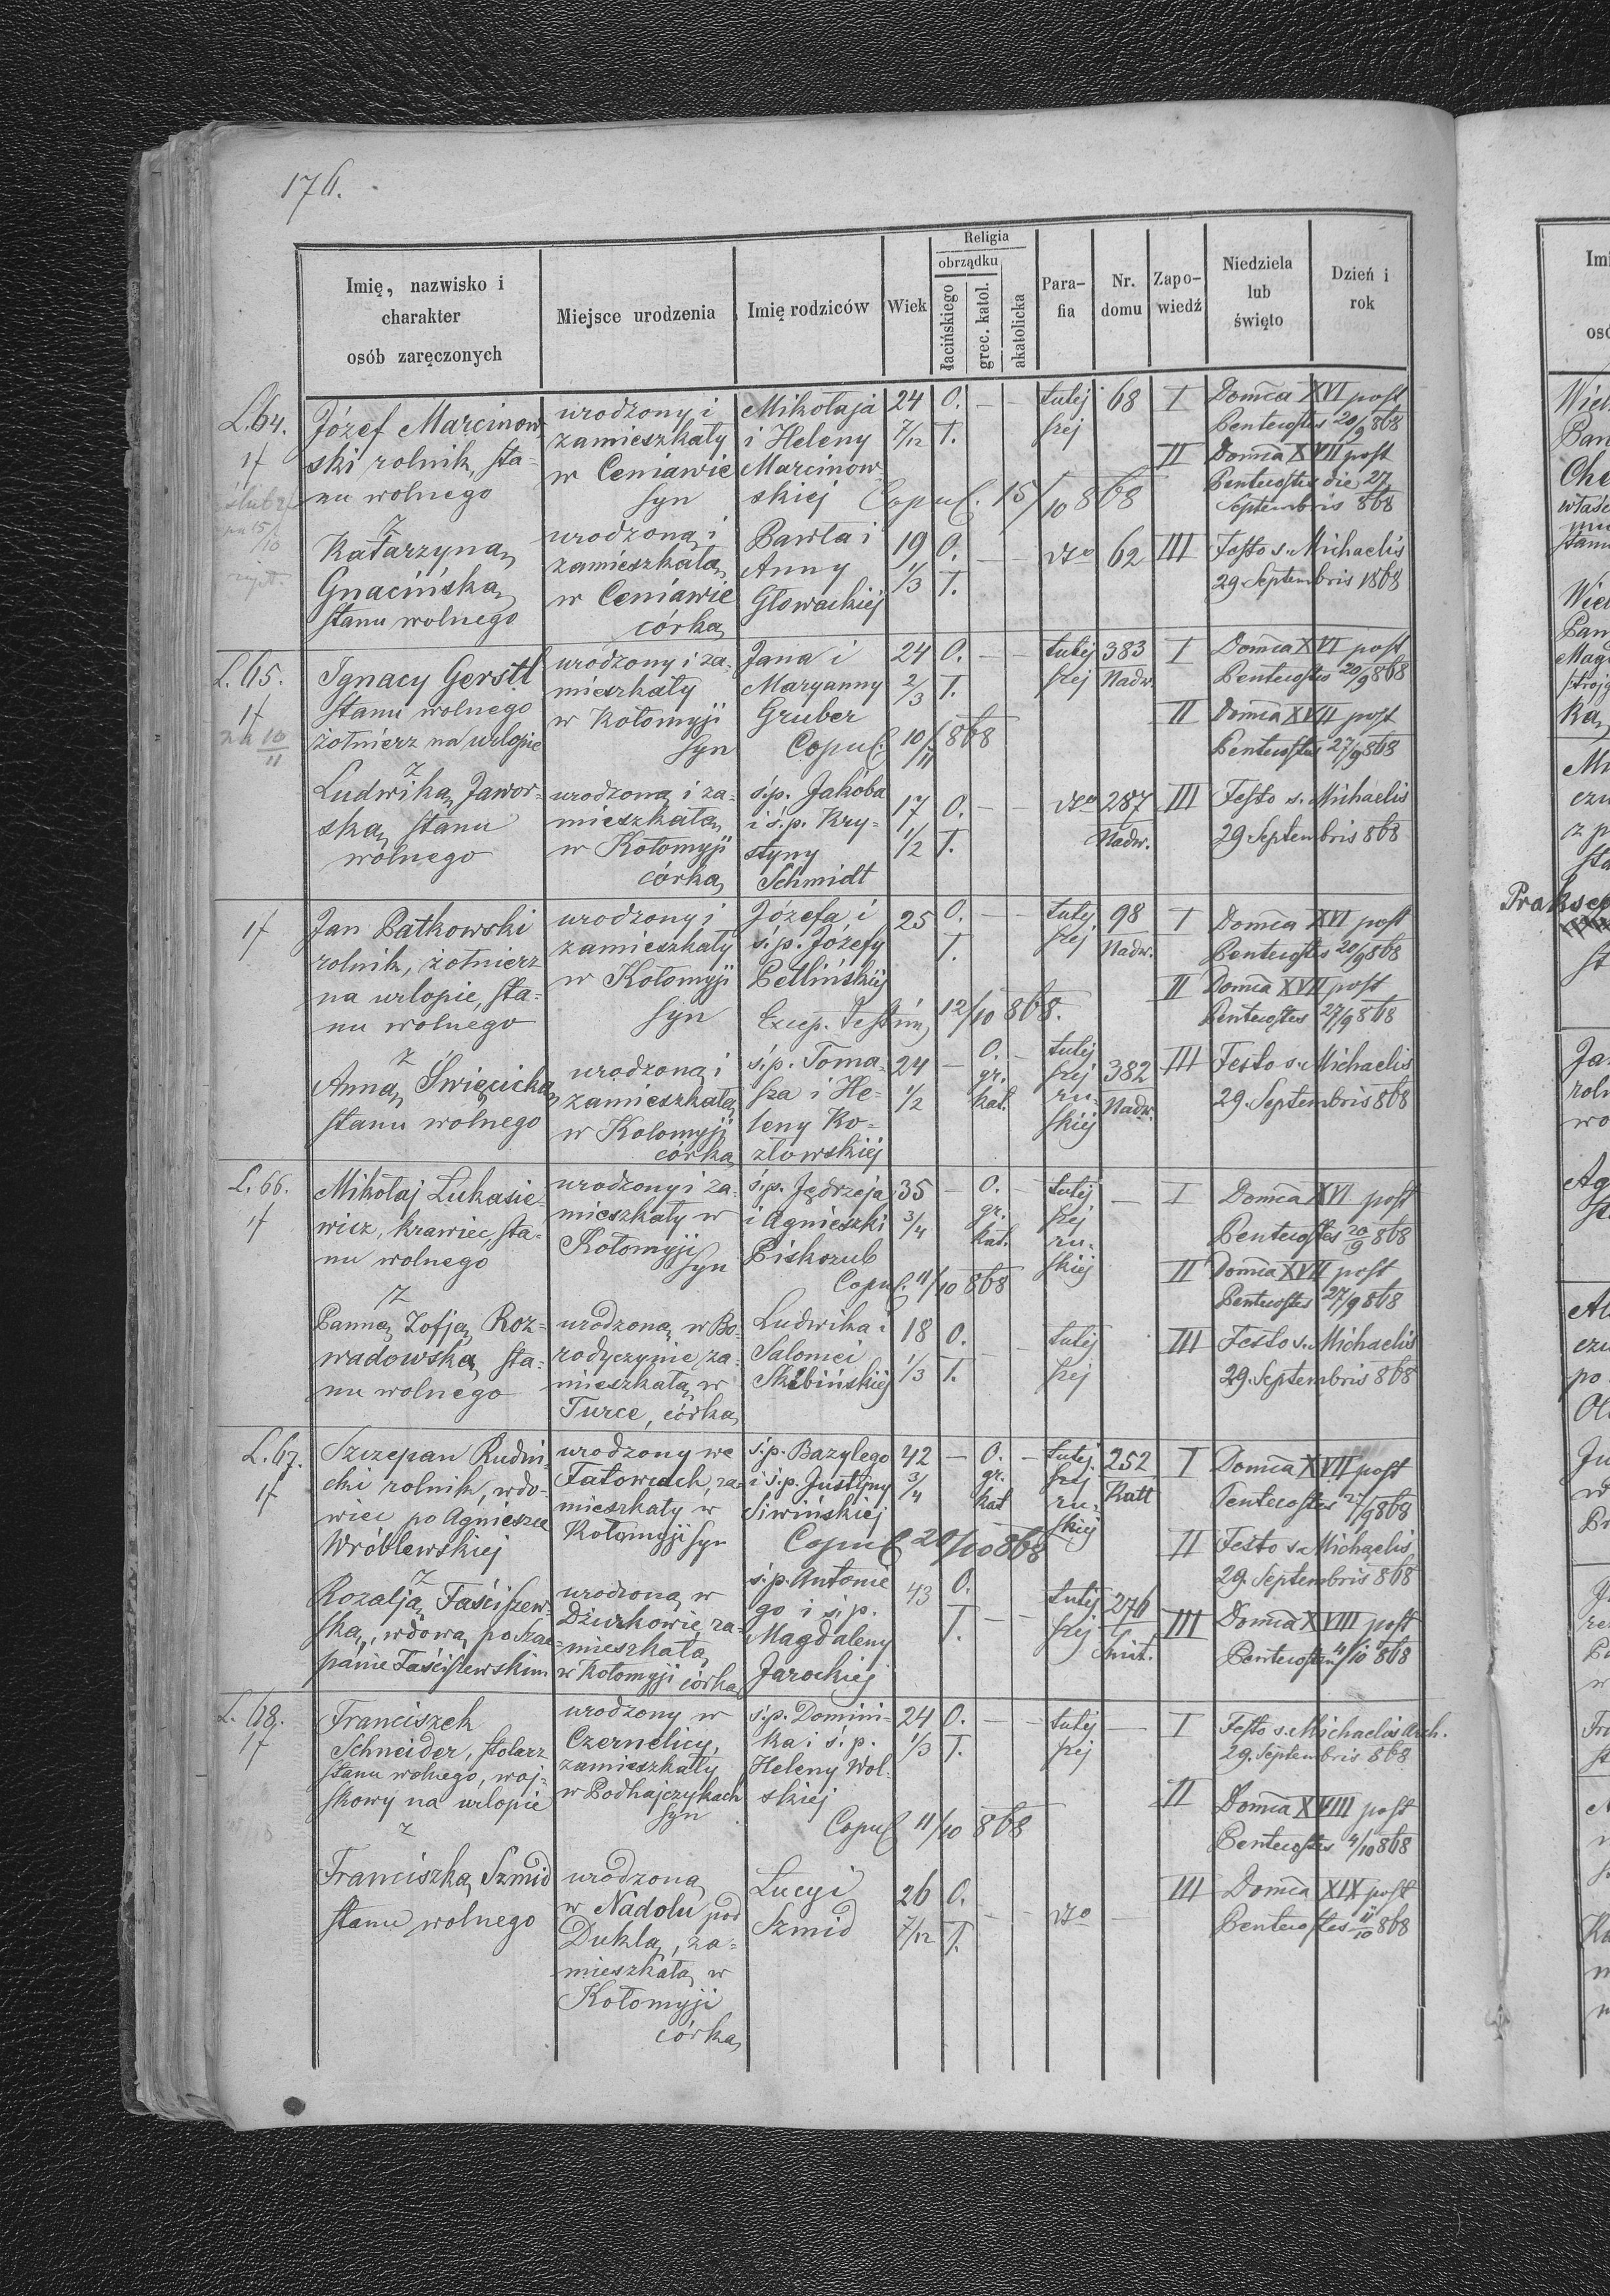 176.
Imię, nazwisko i charakter osób zaręczonych
Miejsce urodzenia
Imię rodziców
Wiek
Religia
obrządku
łacińskiego
grec. katol.
akatolicka
Para-fia
Nr. domu
Zapo-wiedź
Niedziela lub święto
Dzień i rok
L. 64.
Józef Marcinow
ski rolnik, sta-
nu wolnego
urodzony i
zamieszkały
w Ceniawie
syn
Mikołaja
i Heleny
Marcinow
skiej
24 7/12
O. T.
tutej
szej
68
I Domca XVI post
Pentecostes 20/9 868
II Domca XVII post
Pentecostes die 27
Septembris 868
Copul. 15/10 868
z
Katarzyną
Gnacińską
stanu wolnego
urodzoną i
zamieszkałą
w Ceniawie
córką
Pawła i
Anny
Głowackiej
19 1/3
O. T.
dto
62
III Festo s. Michaelis
29 Septembris 1868
L. 65.
Ignacy Gerstl
stanu wolnego
żołnierz na urlopie
urodzony i za-
mieszkały
w Kołomyji
syn
Jana i
Maryanny
Gruber
24 2/3
O. T.
tutej
szej
383
Nadw.
I Domca XVI post
Pentecostes 20/9 868
II Domca XVII post
Pentecostes 27/9 868
Copul. 10/11 868
z
Ludwiką Jawor-
ską stanu
wolnego
urodzoną i za-
mieszkałą
w Kołomyji
córką
ś.p. Jakóba
i ś.p. Kry-
styny
Schmidt
17 1/2
O. T.
dto
287
Nadw.
III Festo s. Michaelis
29 Septembris 868
Jan Patkowski
rolnik, żołnierz
na urlopie, sta-
nu wolnego
urodzony i
zamieszkały
w Kołomyji
syn
Józefa i
ś.p. Józefy
Petlińskiej
25
O. T.
tutej
szej
98
Nadw.
I Domca XVI post
Pentecostes 20/9 868
II Domca XVII post
Pentecostes 27/9 868
12/10 868.
z
Anną Święcicką
stanu wolnego
urodzoną i
zamieszkałą
w Kołomyji
córką
ś.p. Toma-
sza i He-
leny Ko-
złowskiej
24 1/2
O.
gr.
kat.
tutej
szej
ru-
skiej
382
Nadw.
III Festo s. Michaelis
29. Septembris 868
L. 66.
Mikołaj Łukasie-
wicz, krawiec, sta-
nu wolnego
urodzony i za-
mieszkały w
Kołomyji
syn
ś.p. Jędrzeja
i Agnieszki
Piskozub
35 3/4
O.
gr.
kat.
tutej
szej
ru-
skiej
I Domca XVI post
Pentecostes 20/9 868
II Domca XVII post
Pentecostes 27/9 868
Copul. 11/10 868
z
Panną Zofją Roz-
wadowską sta-
nu wolnego
urodzoną w Bo-
rodyczynie za-
mieszkałą w
Turce, córką
Ludwika i
Salomei
Skibińskiej
18 1/3
O. T.
tutej
szej
III Festo s. Michaelis
29. Septembris 868
L. 67.
Szczepan Rudni-
cki rolnik, wdo-
wiec po Agnieszce
Wróblewskiej
urodzony we
Fatowcach, za-
mieszkały w
Kołomyji syn
ś.p. Bazylego
i ś.p. Justyny
Siwińskiej
42 3/4
O.
gr.
kat
tutej
szej
ru-
skiej
252
Katt
I Domca XVII post
Pentecostes 27/9 868
II Festo s. Michaelis
29. Septembris 868
Copul. 20/10 868
z
Rozalją Taściszew-
ską, wdową po Szcze-
panie Taściszewskim
urodzoną w
Dżurkowie, za-
mieszkałą
w Kołomyji córką
ś.p. Antonie
go i ś.p.
Magdaleny
Jarockiej
43
O. T.
tutej
szej
276
Śniat.
III Domca XVIII post
Pentecosten 4/10 868
L. 68.
Franciszek
Schneider, stolarz
stanu wolnego, woj-
skowy na urlopie
urodzony w
Czernelicy,
zamieszkały
w Podhajczykach
syn
ś.p. Domini-
ka i ś.p.
Heleny Wol-
skiej
24 1/3
O. T.
tutej
szej
I Festo s. Michaelis Arch.
29. Septembris 868
II Domca XVIII post
Pentecostes 4/10 868
Copul 11/10 868
z
Franciszką Szmid
stanu wolnego
urodzoną
w Nadolu pod
Duklą, za-
mieszkałą w
Kołomyji
córką
Łucyi
Szmid
26 7/12
O. T.
dto
III Domca XIX post
Pentecostes 11/10 868